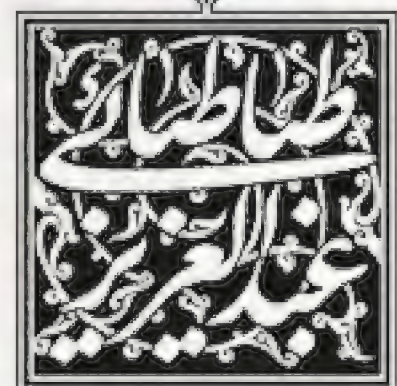 عبد العزيز
طباطبائي